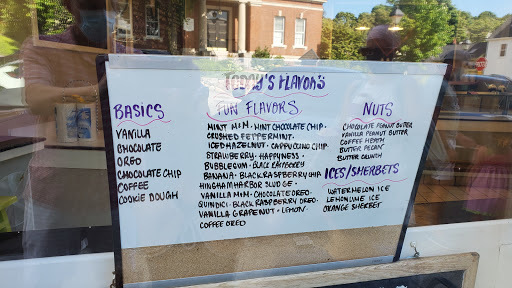 TODAY'S FLAVORS
BASICS
VANILLA
CHOCOLATE
OREO
CHOCOLATE CHIP
COFFEE
COOKIE DOUGH
FUN FLAVORS
MINT M&M · MINT CHOCOLATE CHIP ·
CRUSHED PEPPERMINT ·
ICED HAZELNUT · CAPPUCCINO CHIP ·
STRAWBERRY · HAPPINESS ·
BUBBLEGUM · BLACK RASPBERRY
BANANA · BLACK RASPBERRY CHIP
HINGHAM HARBOR SLUDGE ·
VANILLA M&M · CHOCOLATE OREO ·
QUINDICI · BLACK RASPBERRY OREO ·
VANILLA GRAPENUT · LEMON
COFFEE OREO
NUTS
CHOCOLATE PEANUT BUTTER
VANILLA PEANUT BUTTER
COFFEE HEATH
BUTTER PECAN
BUTTER CRUNCH
ICES/SHERBETS
WATERMELON ICE
LEMON LIME ICE
ORANGE SHERBET